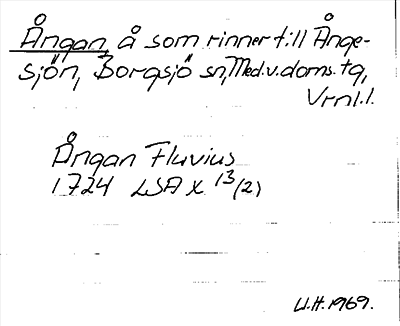 Ångan, å som rinner till Ånge-
sjön, Borgsjö sn, Med.v.doms.tg,
Vrnl.l.
Ångan Fluvius
1724 LSA X 13/(2)
U.H. 1969.